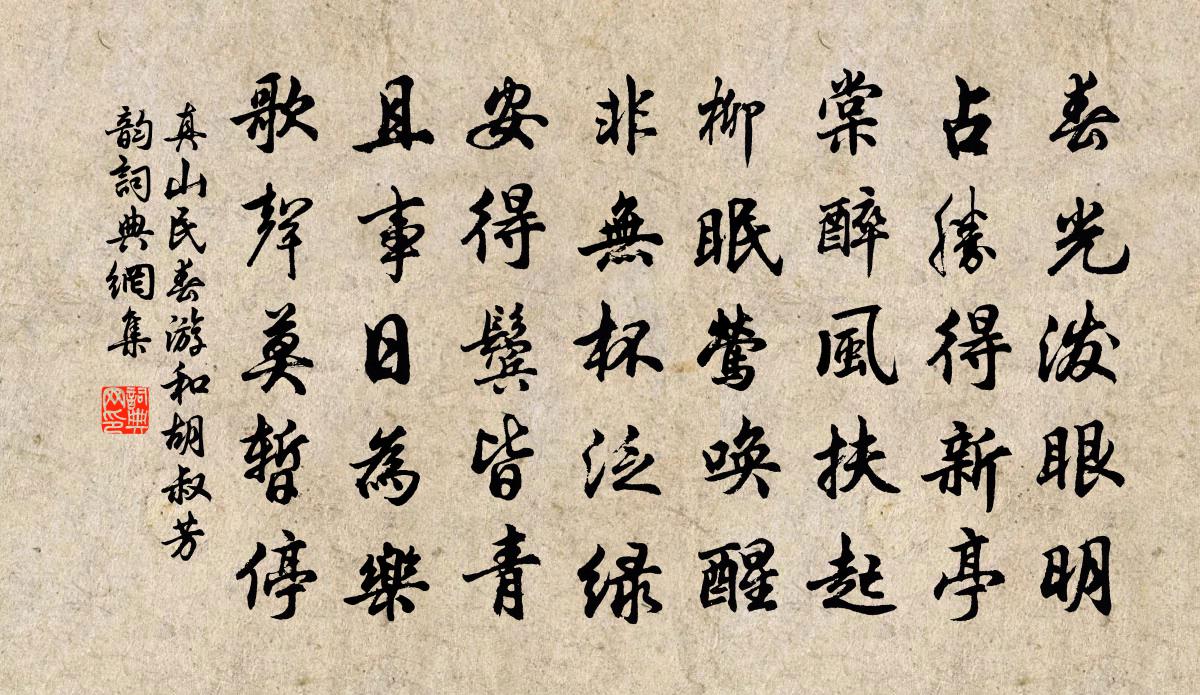 春光泼眼明
占勝得新亭
棠醉風扶起
柳眠鶯唤醒
非無杯泛绿
安得鬓皆青
且事日為樂
歌聲莫暫停
真山民春游和胡叔芳
韵詞典網集
詞典
网印